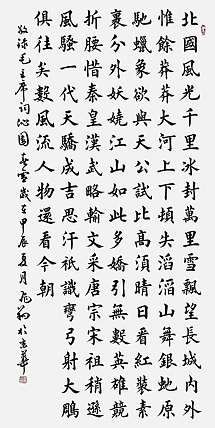 北國風光千里冰封萬里雪飄望長城内外
惟餘莽莽大河上下頓失滔滔山舞銀蛇原
馳蠟象欲與天公試比高須晴日看紅裝素
裹分外妖嬈江山如此多嬌引無數英雄競
折腰惜秦皇漢武略輸文采唐宗宋祖稍遜
風騷一代天驕成吉思汗祇識彎弓射大鵰
俱往矣數風流人物還看今朝
敬錄毛主席詞沁園春雪歲在甲辰夏月於京華